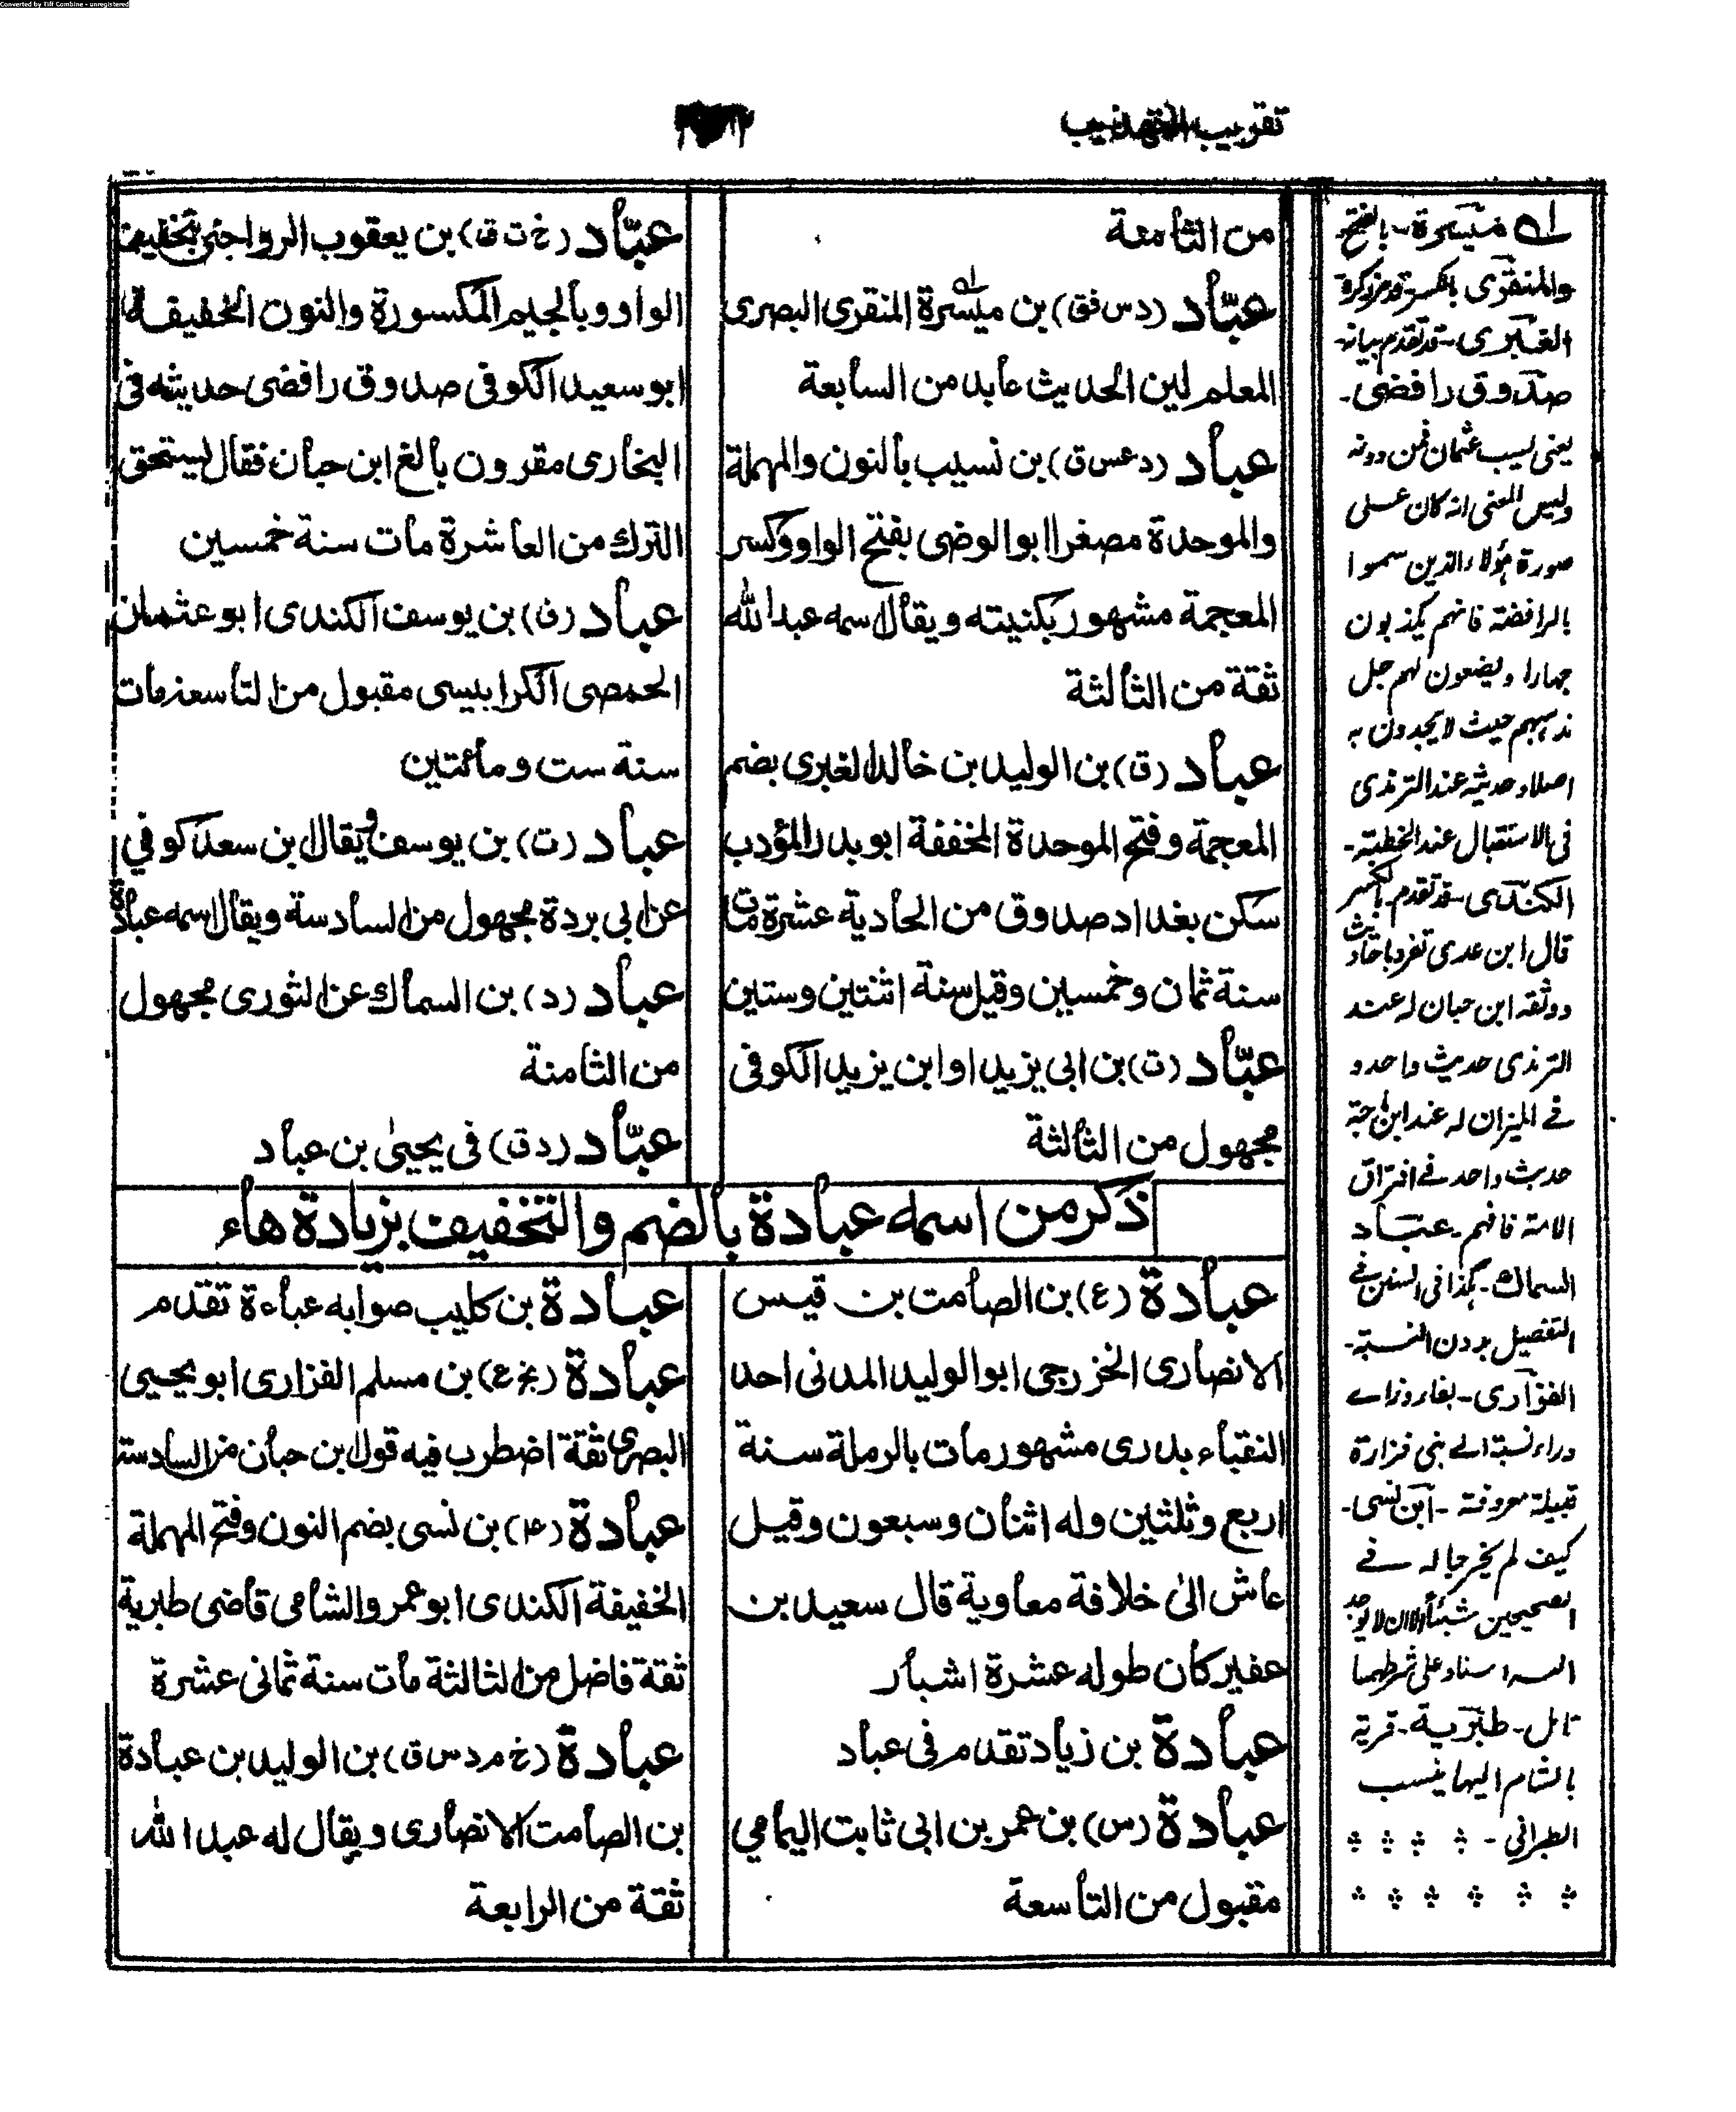 Converted by Tiff Combine - unregistered
تقريب التهذيب
من الثامنة
عبّاد (د س فق) بن ميسرة المنقرى البصرى
المعلم لين الحديث عابد من السابعة
عباد (د عس ق) بن نسيب بالنون والمهملة
والموحدة مصغرا ابو الوضى بفتح الواو وكسر
المعجمة مشهور بكنيته ويقال اسمه عبد الله
ثقة من الثالثة
عباد (ق) بن الوليد بن خالد الغبري بضم
المعجمة وفتح الموحدة المخففة ابو بدر المؤدب
سكن بغداد صدوق من الحادية عشرة مات
سنة ثمان وخمسين وقيل سنة اثنتين وستين
عبّاد (ت) بن ابى يزيد او ابن يزيد الكوفى
مجهول من الثالثة
عبّاد (خ ت ق) بن يعقوب الرواجنى بتخفيف
الواو وبالجيم المكسورة والنون الخفيفة
ابو سعيد الكوفى صدوق رافضى حديثه فى
البخارى مقرون بالغ ابن حبان فقال يستحق
الترك من العاشرة مات سنة خمسين
عباد (ق) بن يوسف الكندى ابو عثمان
الحمصى الكرابيسى مقبول من التاسعة مات
سنة ست ومائتين
عباد (ت) بن يوسف ويقال ابن سعد كوفي
عن ابى بردة مجهول من السادسة ويقال اسمه عبادة
عباد (د) بن السماك عن الثورى مجهول
من الثامنة
عبّاد (د ق) فى يحيى بن عباد
ذكر من اسمه عبادة بالضم والتخفيف بزيادة هاء
عبادة (ع) بن الصامت بن قيس
الانصارى الخزرجى ابو الوليد المدنى احد
النقباء بدرى مشهور مات بالرملة سنة
اربع وثلثين وله اثنان وسبعون وقيل
عاش الى خلافة معاوية قال سعيد بن
عفير كان طوله عشرة اشبار
عبادة بن زياد تقدم فى عباد
عبادة (س) بن عمر بن ابى ثابت اليمامي
مقبول من التاسعة
عبادة بن كليب صوابه عباءة تقدم
عبادة (بخ ع) بن مسلم الفزارى ابو يحيى
البصرى ثقة اضطرب فيه قول ابن حبان من السادسة
عبادة (عه) بن نسى بضم النون وفتح المهملة
الخفيفة الكندى ابو عمرو الشامى قاضى طبرية
ثقة فاضل من الثالثة مات سنة ثمانى عشرة
عبادة (خ م د س ق) بن الوليد بن عبادة
بن الصامت الانصارى ويقال له عبد الله
ثقة من الرابعة
له ميسرة - بالفتح
والمنقرى بالكسر
الغبرى - قد تقدم بيانه
صدوق رافضى -
يعنى يسب عثمان فمن دونه
وليس المعنى انه كان على
صورة هؤلاء الذين سموا
بالرافضة فانهم يكذبون
جهارا ويضعون لهم جل
مذهبهم حيث لا يجدون به
اصلا وحديثه عند الترمذى
فى الاستقبال عند الخطبة -
الكندى - قد تقدم بالكسر
قال ابن عدى تفرد باحاديث
ووثقه ابن حبان له عند
الترمذى حديث واحد و
فے الميزان له عند ابن ماجة
حديث واحد فے افتراق
الامة فافهم - عباد
السماك - كذا فى السنن فے
التفصيل بدون النسبة -
الفزارى - بفاء وزاے
وراء نسبة الے بنى فزارة
قبيلة معروفة - ابن نسى -
كيف لم يخرجا له فے
الصحيحين شيئا الا ان لا يوجد
اليه اسناد على شرطهما
تامل - طبرية - قرية
بالشام اليها ينسب
الطبرانى -